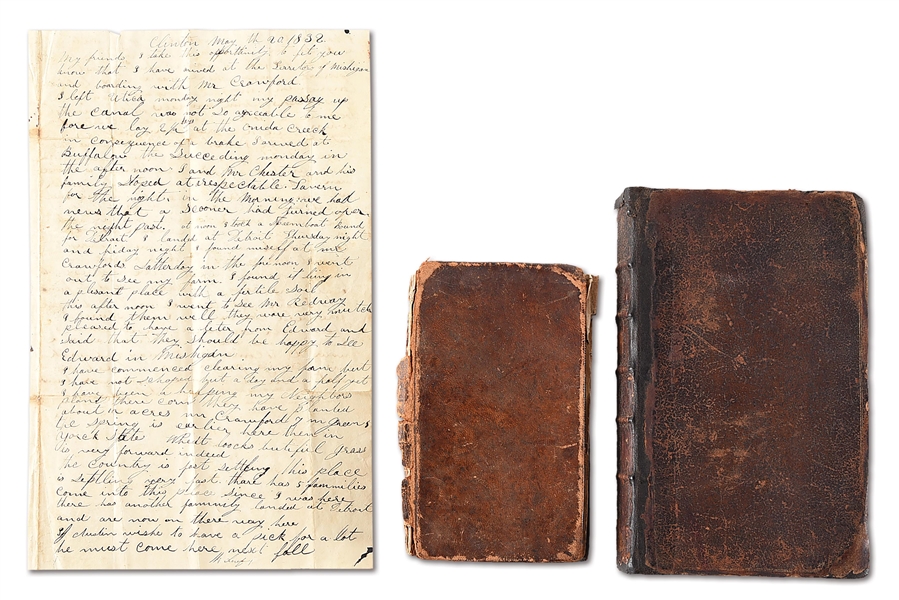 Clinton May th 20 1832
My friends I take this opportunity to let you
know that I have arived at the Territory of Mishigan
and boarding with Mr Crawford
I left Utica monday night my passag up
the canal was not so agreable to me
fore we lay at the Onida Creek
in consequence of a brake I arived at
Buffalow the Succeding monday in
the after noon I and Mr Chester and his
family stoped at respectable Tavern
for the night in the Morning we had
news that a Scooner had turned over
the night past. at noon I took a Steamboat bound
for Detroit I landed at Detroit Thursday night
and friday night I found miself at Mr
Crawfords Satterday in the forenoon I went
out to see my farm I found it ling in
a plesent place with a fertile Soil
this after noon I went to see Mr
I found them well they were very
pleased to have a leter from Edward and
said that they should be happy to See
Edward in Mishigan
I have commenced clearing my farm but
I have not but a day and a half yet
I have been a helping my Neighbors
plant there corn they have planted
about acres Mr Crawford
the Spring is earlier here then in
Yorck State Wheat loocks butiful grass
is very forward indeed
the Country is fast setling this place
is Settling very fast there has 5 fammilies
come into this place Since I was here
there has another fammily landed at Detroit
and are now on there way here
If Austin wishes to have a pick for a lot
he must come here next fall